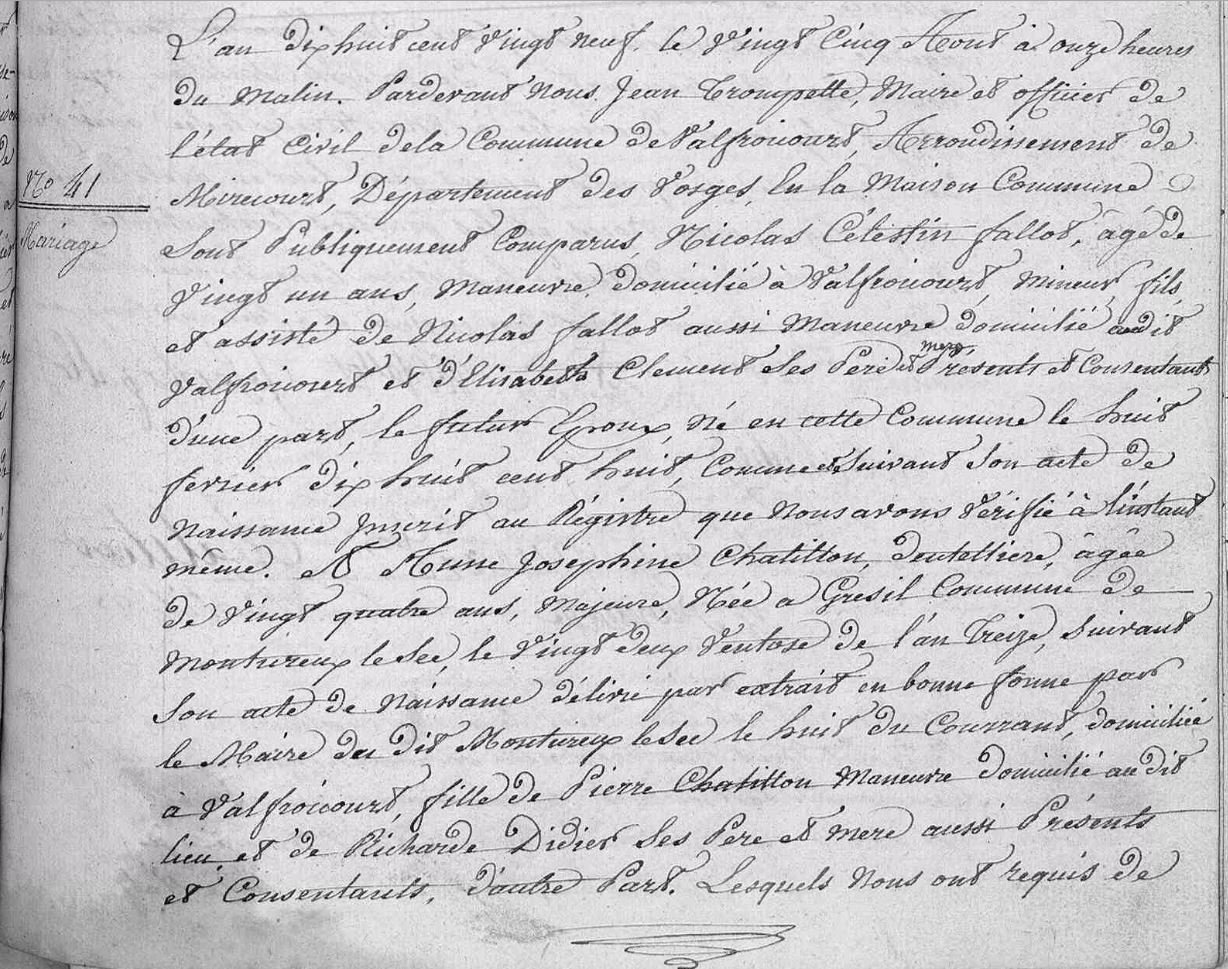 L'an dix huit cent vingt neuf. le vingt Cinq Aout à onze heures
du Matin. Pardevant Nous Jean Trompette, Maire et officier de
l'état Civil de la Commune de Valfroicourt, Arrondissement de
N.o 41
Mirecourt, Département des Vosges, En la Maison Commune
Mariage
Sont Publiquement Comparus, Nicolas Célestin fallot, âgé de
Vingt un ans, Maneuvre, domicilié à Valfroicourt, Mineur, fils
et assisté de Nicolas fallot aussi Maneuvre domicilié audit
Valfroicourt et d'Elisabeth Clement Ses Pere et mere Présents et Consentants
d'une part, le futur Epoux, né en cette Commune le huit
fevrier dix huit cent huit, Comme est suivant Son acte de
Naissance Inscrit au Régistre que Nous avons Vérifié à l'instant
même. Et Anne Josephine Chatillon, dentelliere, âgée
de Vingt quatre ans, Majeure, Née a Gresil Commune de
Montureux le Sec, le Vingt deux Ventose de l'an Treize, Suivant
Son acte de Naissance délivré par extrait en bonne forme par
le Maire du dit Montureux le Sec le huit du Courrant, domiciliée
à Valfroicourt, fille de Pierre Chatillon Maneuvre domicilié au dit
lieu, et de Richarde Didier Ses Pere et mere aussi Présents
et Consentants, d'autre Part. Lesquels Nous ont requis de